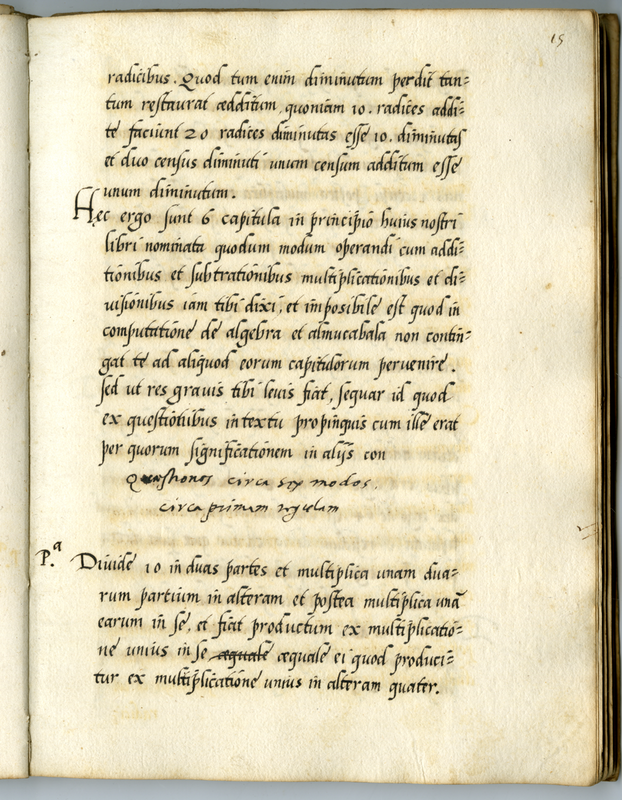 15
radicibus. Quod tum enim diminutum perdit tan=
tum restaurat additum, quoniam 10. radices addi=
te faciunt 20 radices diminutas esse 10. diminutas
et duo census diminuti unum censum additum esse
unum diminutum.
Hęc ergo sunt 6 capitula in principio huius nostri
libri nominata quodum modum operandi cum addi=
tionibus et subtrationibus multiplicationibus et di=
visionibus iam tibi dixi, et imposibile est quod in
computatione de algebra et almucabala non contin=
gat te ad aliquod eorum capitulorum pervenire.
sed ut res gravis tibi levis fiat, sequar id quod
ex questionibus in textu propinquis cum ille erat
per quorum significationem in alijs con
Quęstiones circa sex modos.
circa primam regulam
P.a Divide 10 in duas partes et multiplica unam dua=
rum partium in alteram et postea multiplica unā
earum in se, et fiat productum ex multiplicatio=
ne unius in se æquale æquale ei quod produci=
tur ex multiplicatione unius in alteram quater.